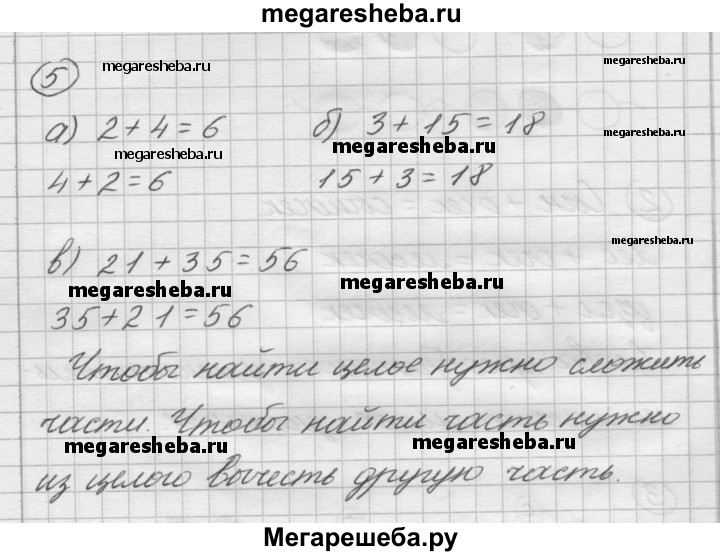 megaresheba.ru
5
megaresheba.ru
megaresheba.ru
а) 2 + 4 = 6 б) 3 + 15 = 18
megaresheba.ru
megaresheba.ru
megaresheba.ru
4 + 2 = 6 15 + 3 = 18
в) 21 + 35 = 56
megaresheba.ru
megaresheba.ru
35 + 21 = 56
Чтобы найти целое нужно сложить
части. Чтобы найти часть нужно
megaresheba.ru
megaresheba.ru
из целого вычесть другую часть.
Мегарешеба.ру